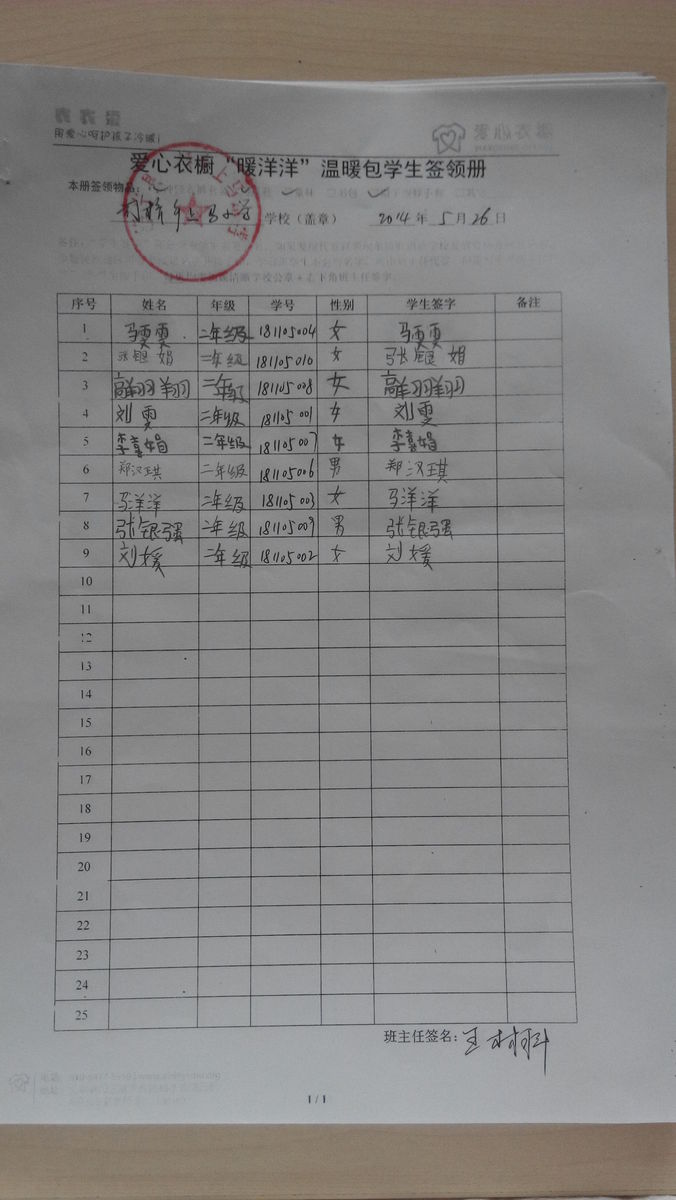 用爱心呵护孩子冷暖!
爱心衣橱“暖洋洋”温暖包学生签领册
本册签领物品:
学校(盖章) 2014年5月26日
序号 姓名 年级 学号 性别 学生签字 备注
1 马雯雯 二年级 181105004 女 马雯雯
2 张银娟 二年级 181105010 女 张银娟
3 高翔翔 二年级 181105008 女 高翔翔
4 刘雯 二年级 181105001 女 刘雯
5 李喜娟 二年级 181105007 女 李喜娟
6 郑汉琪 二年级 181105006 男 郑汉琪
7 马洋洋 二年级 181105003 女 马洋洋
8 张银强 二年级 181105009 男 张银强
9 刘媛 二年级 181105002 女 刘媛
10
11
12
13
14
15
16
17
18
19
20
21
22
23
24
25
班主任签名:王材科
1 / 1